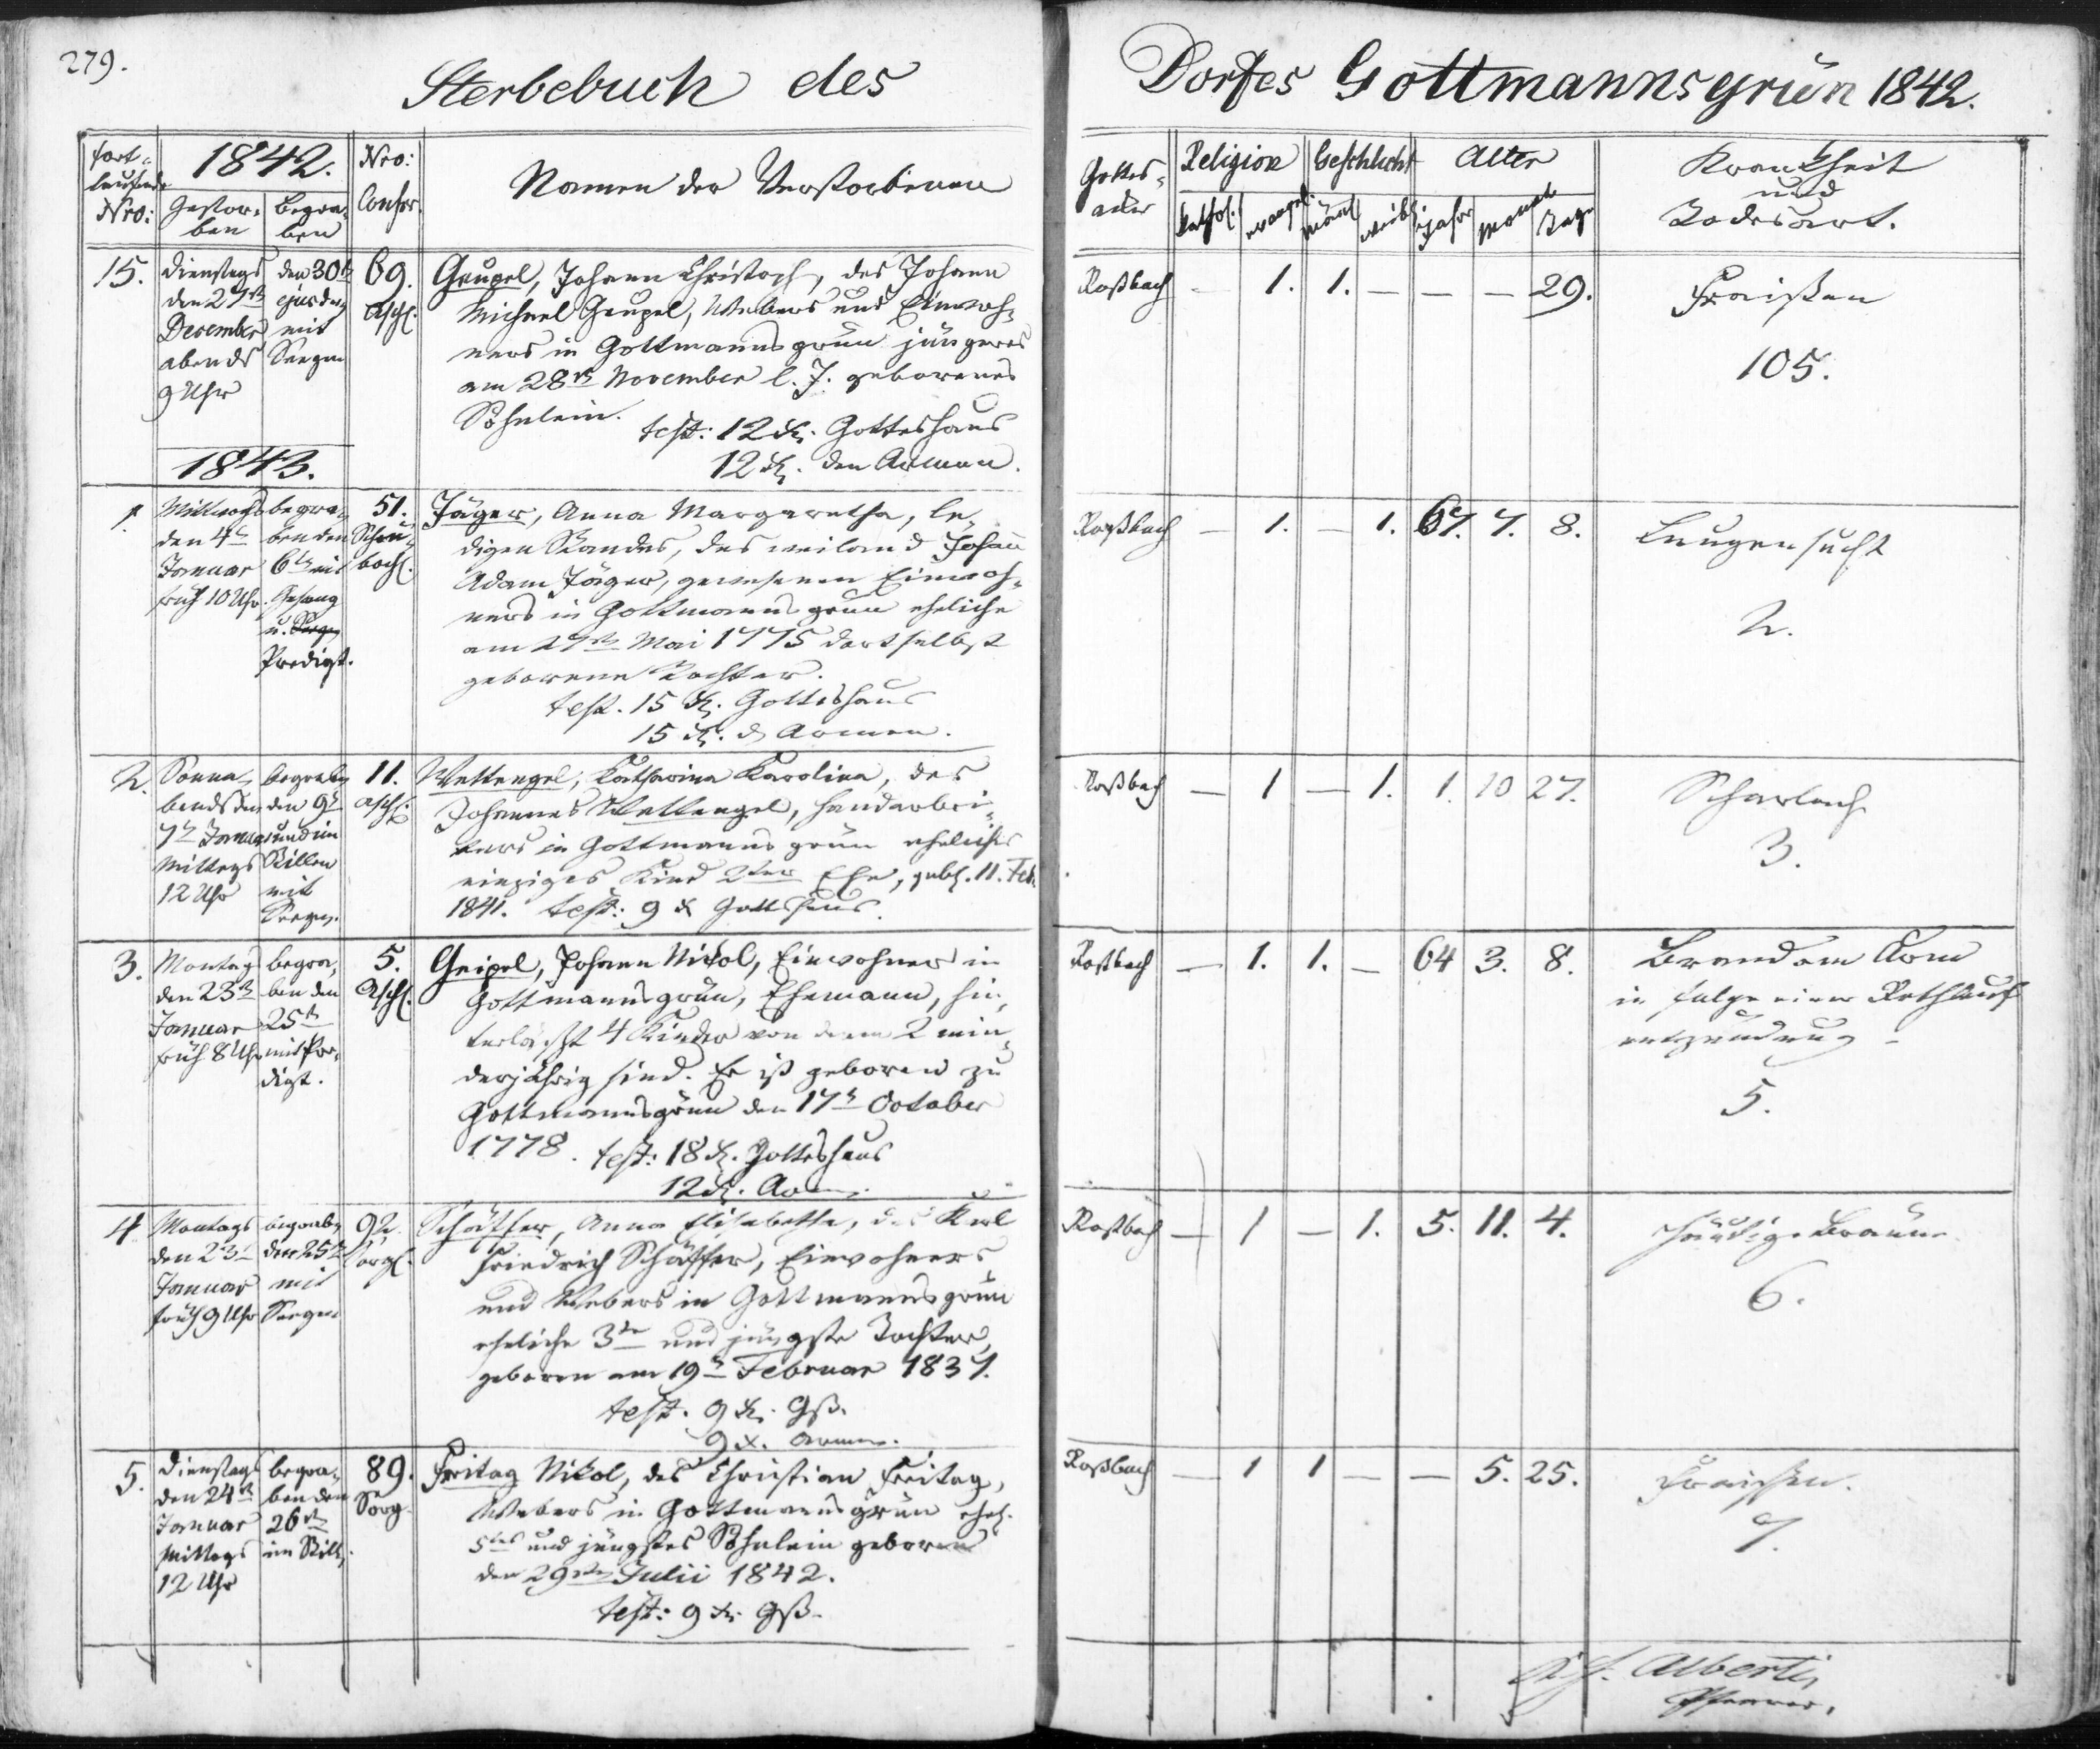 279.
Sterbebuch des
Dorfes Gottmannsgrün 1842.
fort-
laufende
Nro:
1842.
Gestor-
ben
Begra-
ben
Nro:
Conscr.
Namen der Verstorbenen
Gottes-
acker
Religion
kathol.
evangel.
Geschlecht
mänl.
weibl.
Alter
Jahr
Monat
Tage
Krankheit
und
Todesart.
15.
Dienstags
den 27ten
December
abends
9 Uhr
den 30ten
ejusdem
mit
Seegen
69.
Asch.
Geupel, Johann Christoph, des Johann
Michael Geupel, Webers und Einwoh-
ners in Gottmannsgrün jüngeres
am 28ten November l. J. geborenes
Söhnlein.
test: 12 xr. Gotteshaus
12 xr. den Armen.
Roßbach
—
1.
1.
—
—
—
29.
Fraißen
105.
1843.
1.
Mittwochs
den 4ten
Januar
früh 10 Uhr.
begra-
ben den
6ten mit
Gesang
u. Seegen
Predigt.
51.
Schön-
bach.
Jäger, Anna Margaretha, le-
digen Standes, des weiland Johann
Adam Jäger, gewesenen Einwoh-
ners in Gottmannsgrün eheliche
am 27ten Mai 1775 dortselbst
geborene Tochter.
test. 15 xr. Gotteshaus
15 xr. d. Armen.
Roßbach
—
1.
—
1.
67.
7.
8.
Lungensucht
2.
2.
Sonna-
bends den
7ten Januar
Mittags
12 Uhr
begraben
den 9ten
und im
Stillen
mit
Seegen.
11.
Asch.
Wettengel, Katharina Karolina, des
Johannes Wettengel, Handarbei-
ters in Gottmannsgrün eheliches
einziges Kind 2ter Ehe, geb. 11. Feb.
1841. test: 9 x Gotteshaus.
Roßbach
—
1
—
1.
1.
10
27.
Scharlach
3.
3.
Montag
den 23ten
Januar
früh 8 Uhr
begra-
ben den
25ten
mit Pre-
digt.
5.
Asch.
Geipel, Johann Nikol, Einwohner in
Gottmannsgrün, Ehemann, hin-
terläßt 4 Kinder von denen 2 min-
derjährig sind. Er ist geboren zu
Gottmannsgrün den 17ten October
1778. test: 18 xr. Gotteshaus
12 xr. Armen.
Roßbach
—
1.
1.
—
64
3.
8.
Brand am Arm
in Folge einer Rothlauf
entzündung
5.
4
Montags
den 23ten
Januar
früh 9 Uhr
begraben
den 25ten
mit
Seegen
92.
Sorg.
Schäffer, Anna Elisabetha, des Karl
Friedrich Schäffer, Einwohners
und Webers in Gottmannsgrün
eheliche 3te und jüngste Tochter,
geboren am 19ten Februar 1837.
test. 9 xr. Gß.
9 x. Armen.
Roßbach
—
1
—
1.
5.
11.
4.
häutige Bräune
6.
5.
Dienstags
den 24ten
Januar
Mittags
12 Uhr
begra-
ben den
26ten
im Still.
89.
Sorg
Freitag Nikol, des Christian Freitag,
Webers in Gottmannsgrün ehel.
5tes und jüngstes Söhnlein geboren
den 29sten Julii 1842.
test: 9 xr. Gß.
Roßbach
—
1
1
—
—
5.
25.
Fraißen.
7.
Alberti,
Pfarrer.